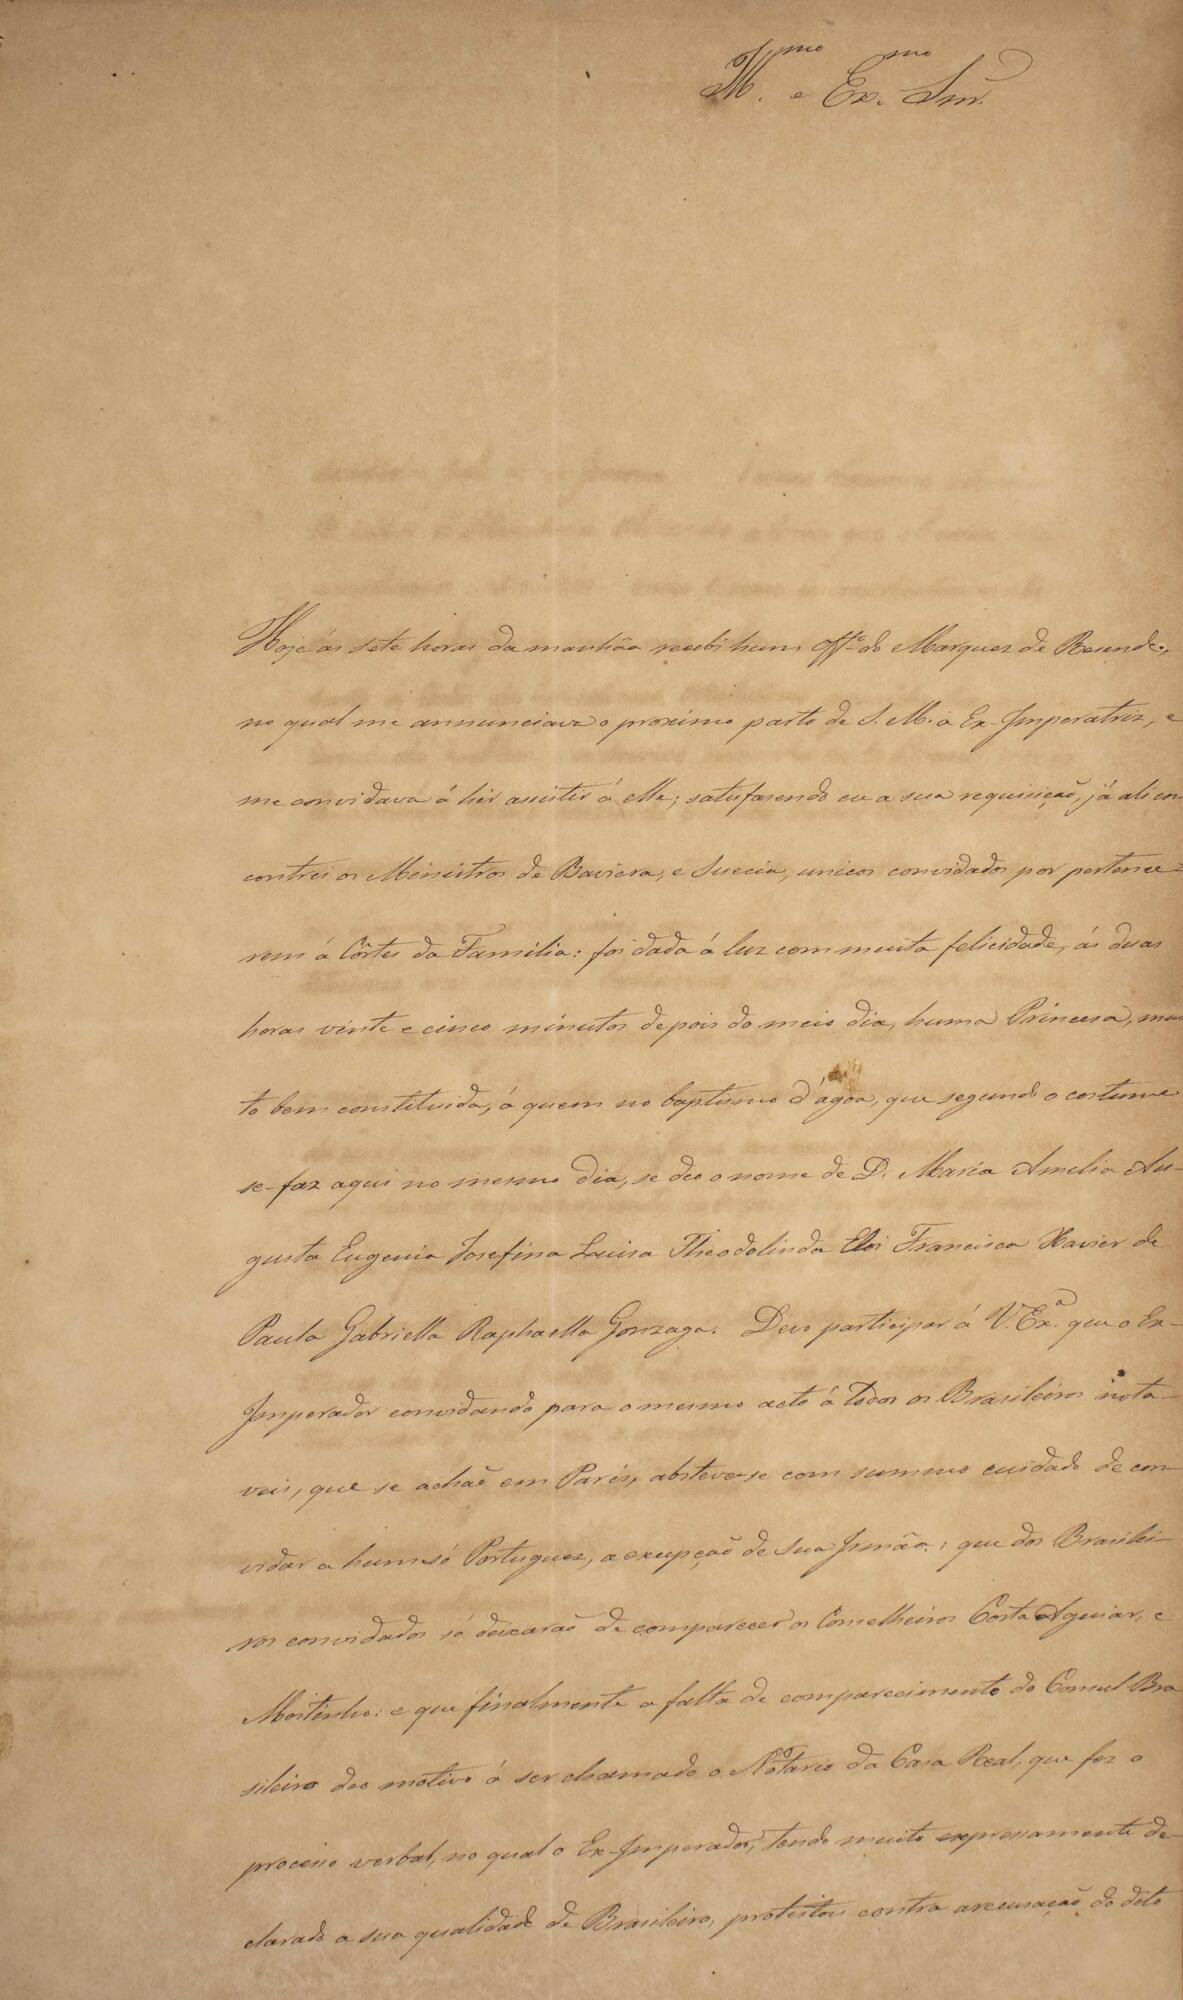 Ill.mo e Ex.mo Snr.
Hoje ás sete horas da manhãa recebi hum Off.º do Marquez de Resende,
no qual me annunciava o proximo parto de S. M. a Ex-Imperatriz, e
me convidava á hir assistir á elle; satisfasendo eu a sua requisição, já ali en-
contrei os Ministros de Baviera, e Suecia, unicos convidados por pertence-
rem á Côrtes da Familia: foi dada á luz com muita felicidade, ás duas
horas vinte e cinco minutos depois do meio dia, huma Princesa, mui
to bem constituida, á quem no baptismo d'ágoa, que segundo o costume
se-faz aqui no mesmo dia, se deo o nome de D. Maria Amelia Au-
gusta Eugenia Josefina Luisa Theodolinda Eloi Francisca Xavier de
Paula Gabriella Raphaella Gonzaga. Devo participar á V. Ex.ª que o Ex-
Imperador convidando para o mesmo acto á todos os Brasileiros nota-
veis, que se achão em Paris, absteve-se com summo cuidado de con-
vidar a hum só Portuguez, a excepção de Sua Irmãa; que dos Brasilei-
ros convidados só deixarão de comparecer os Conselheiros Costa Aguiar, e
Moitinho: e que finalmente a falta de comparecimento do Consul Bra
sileiro deo motivo á ser chamado o Notario da Casa Real, que fez o
processo verbal, no qual o Ex-Imperador, tendo muito expressamente de-
clarado a sua qualidade de Brasileiro, protestou contra a recusação do dito